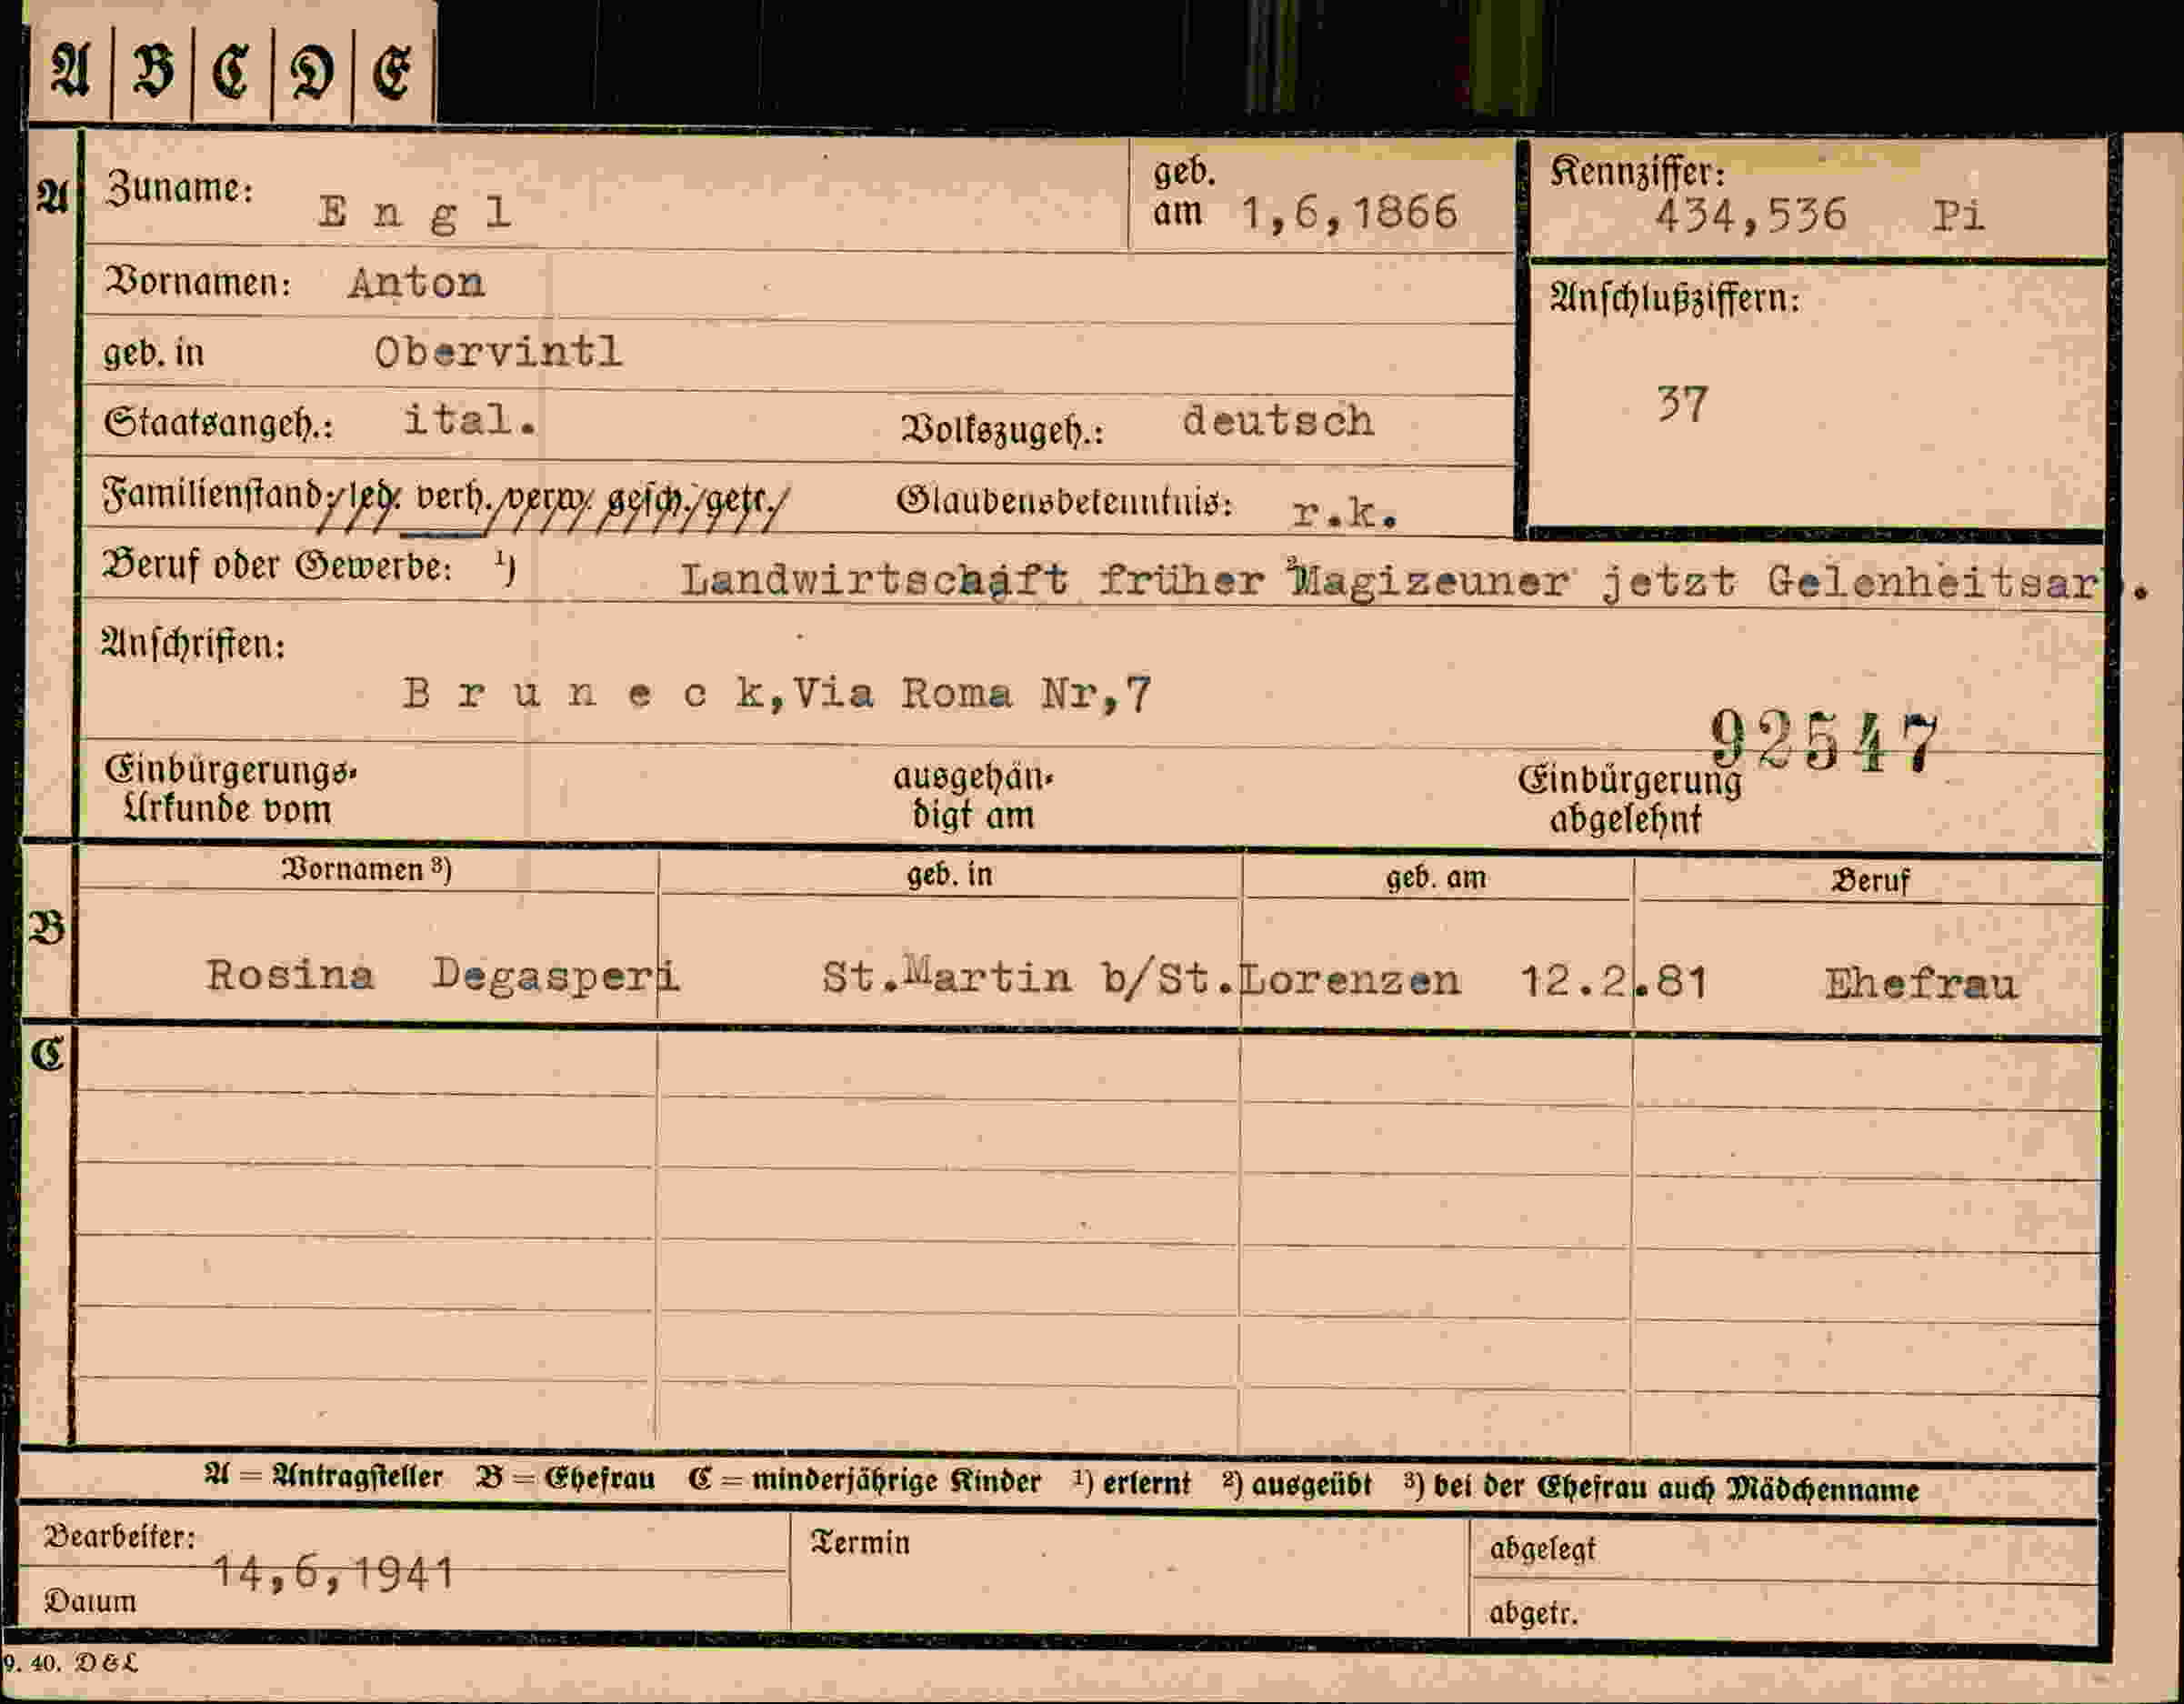 A B C D E
A Zuname: E n g l geb. am 1,6,1866 Kennziffer: 434,536 Pi
Vornamen: Anton
Anschlußziffern:
geb. in Obervintl
37
Staatsangeh.: ital. Volkszugeh.: deutsch
Familienstand: led. verh. verw. gesch. getr. Glaubensbekenntnis: r.k.
Beruf oder Gewerbe: 1) Landwirtschaft früher 2) Magizeuner jetzt Gelenheitsar .
Anschriften:
B r u n e c k, Via Roma Nr,7
92547
Einbürgerungs- ausgehän- Einbürgerung
Urkunde vom digt am abgelehnt
Vornamen 3) geb. in geb. am Beruf
B
Rosina Degasperi St.Martin b/St.Lorenzen 12.2.81 Ehefrau
C
A = Antragsteller B = Ehefrau C = minderjährige Kinder 1) erlernt 2) ausgeübt 3) bei der Ehefrau auch Mädchenname
Bearbeiter: Termin abgelegt
14,6,1941
Datum abgetr.
9. 40. D & L